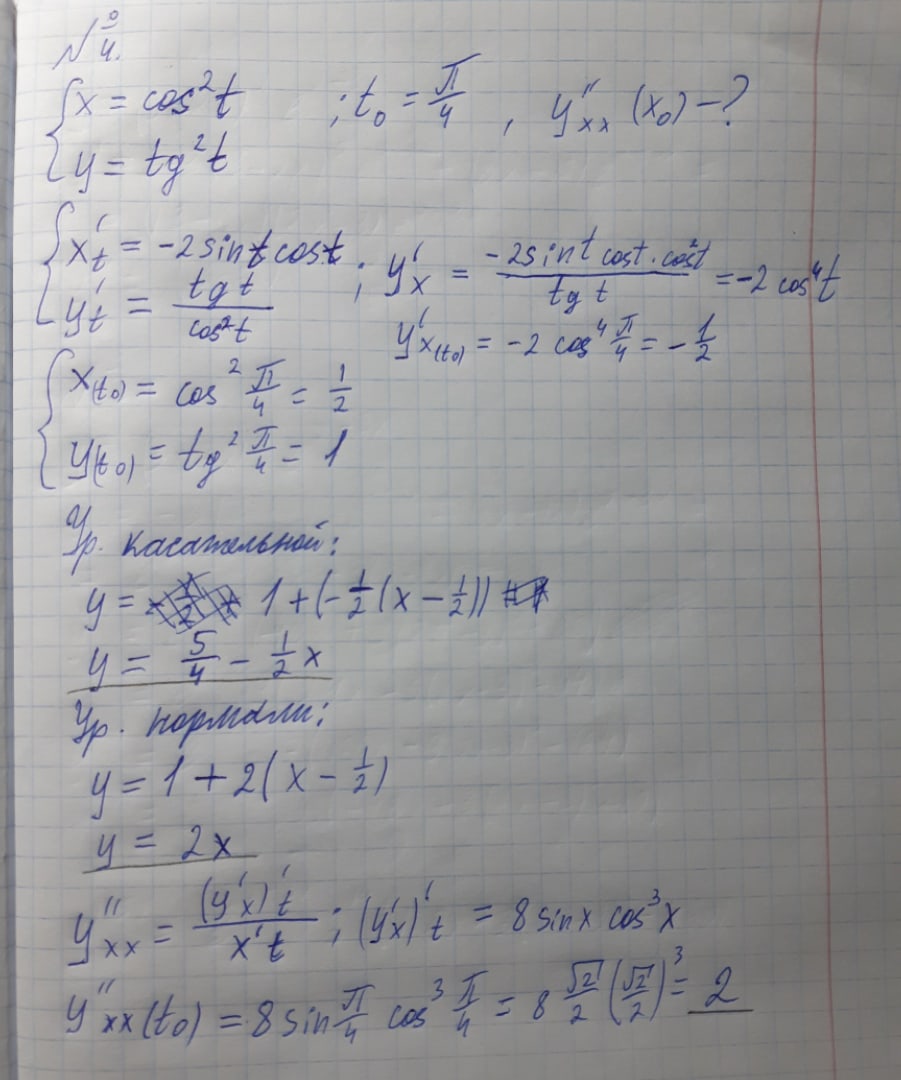 № 4.
{ x = cos²t ; t₀ = π/4 , y''ₓₓ (x₀) – ?
{ y = tg²t
{ x't = -2 sint cost ; y'x = (-2 sint cost · cos²t)/(tg t) = -2 cos⁴t
{ y't = (tg t)/(cos²t)
y'x(t₀) = -2 cos⁴ π/4 = -1/2
{ x(t₀) = cos² π/4 = 1/2
{ y(t₀) = tg² π/4 = 1
Ур. касательной:
y = 1 + (-1/2 (x - 1/2))
y = 5/4 - 1/2 x
Ур. нормали:
y = 1 + 2(x - 1/2)
y = 2x
y''xx = (y'x)'t / x't ; (y'x)'t = 8 sinx cos³x
y''xx(t₀) = 8 sin π/4 cos³ π/4 = 8 √2/2 (√2/2)³ = 2